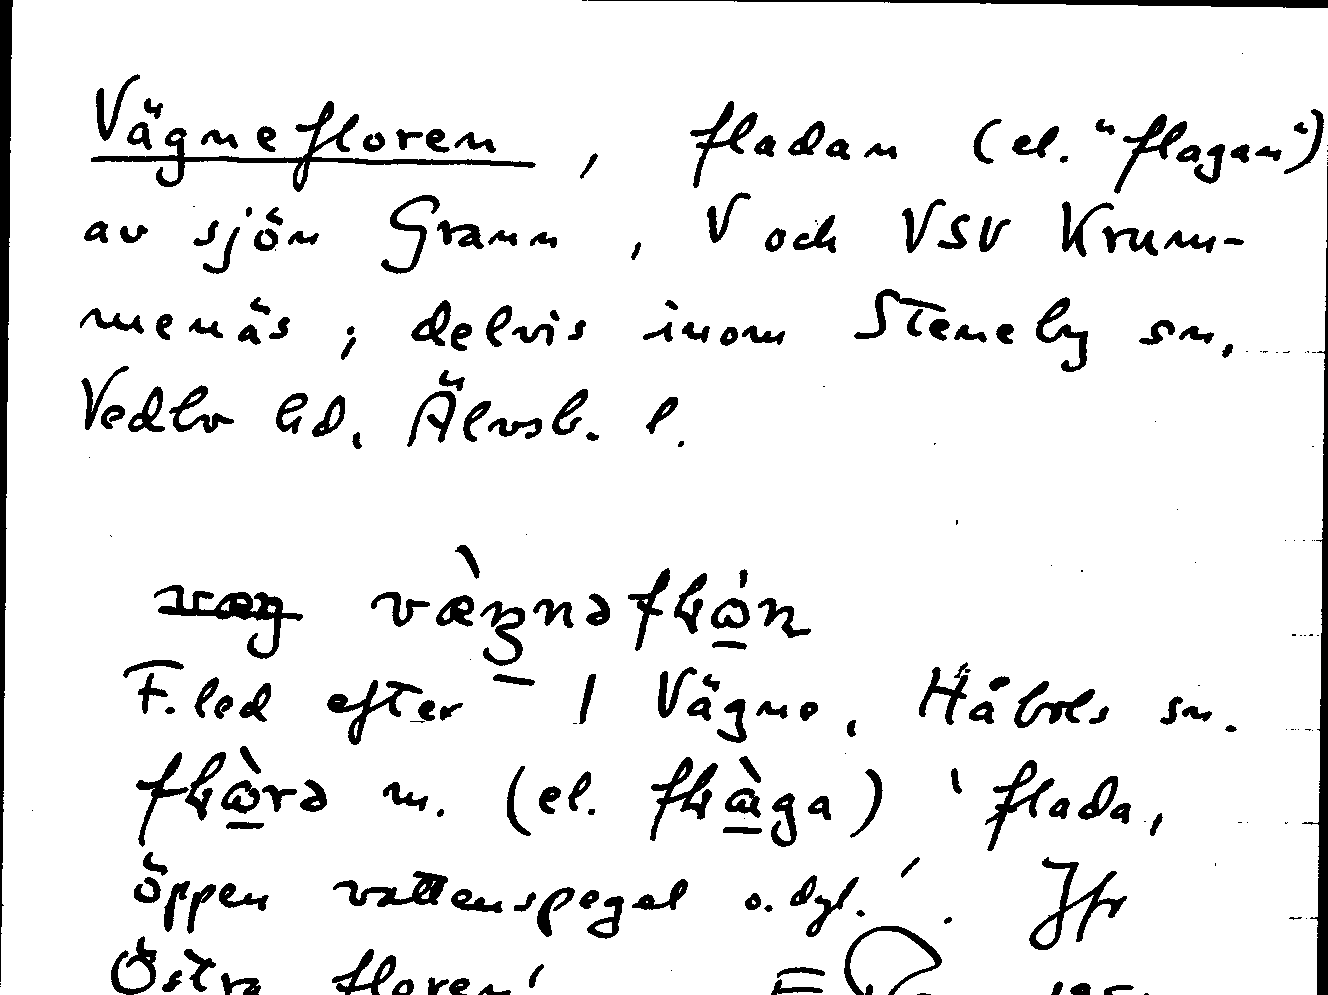 Vägnefloren, fladan (el. "flagan")
av sjön Grann, V och VSV Krum-
menäs; delvis inom Steneby sn,
Vedbo hd, Älvsb. l.
F.led efter 1 Vägne, Håbols sn.
m. (el. ) 'flada,
öppen vattenspegel o. dyl.'. Jfr
Östra floren!